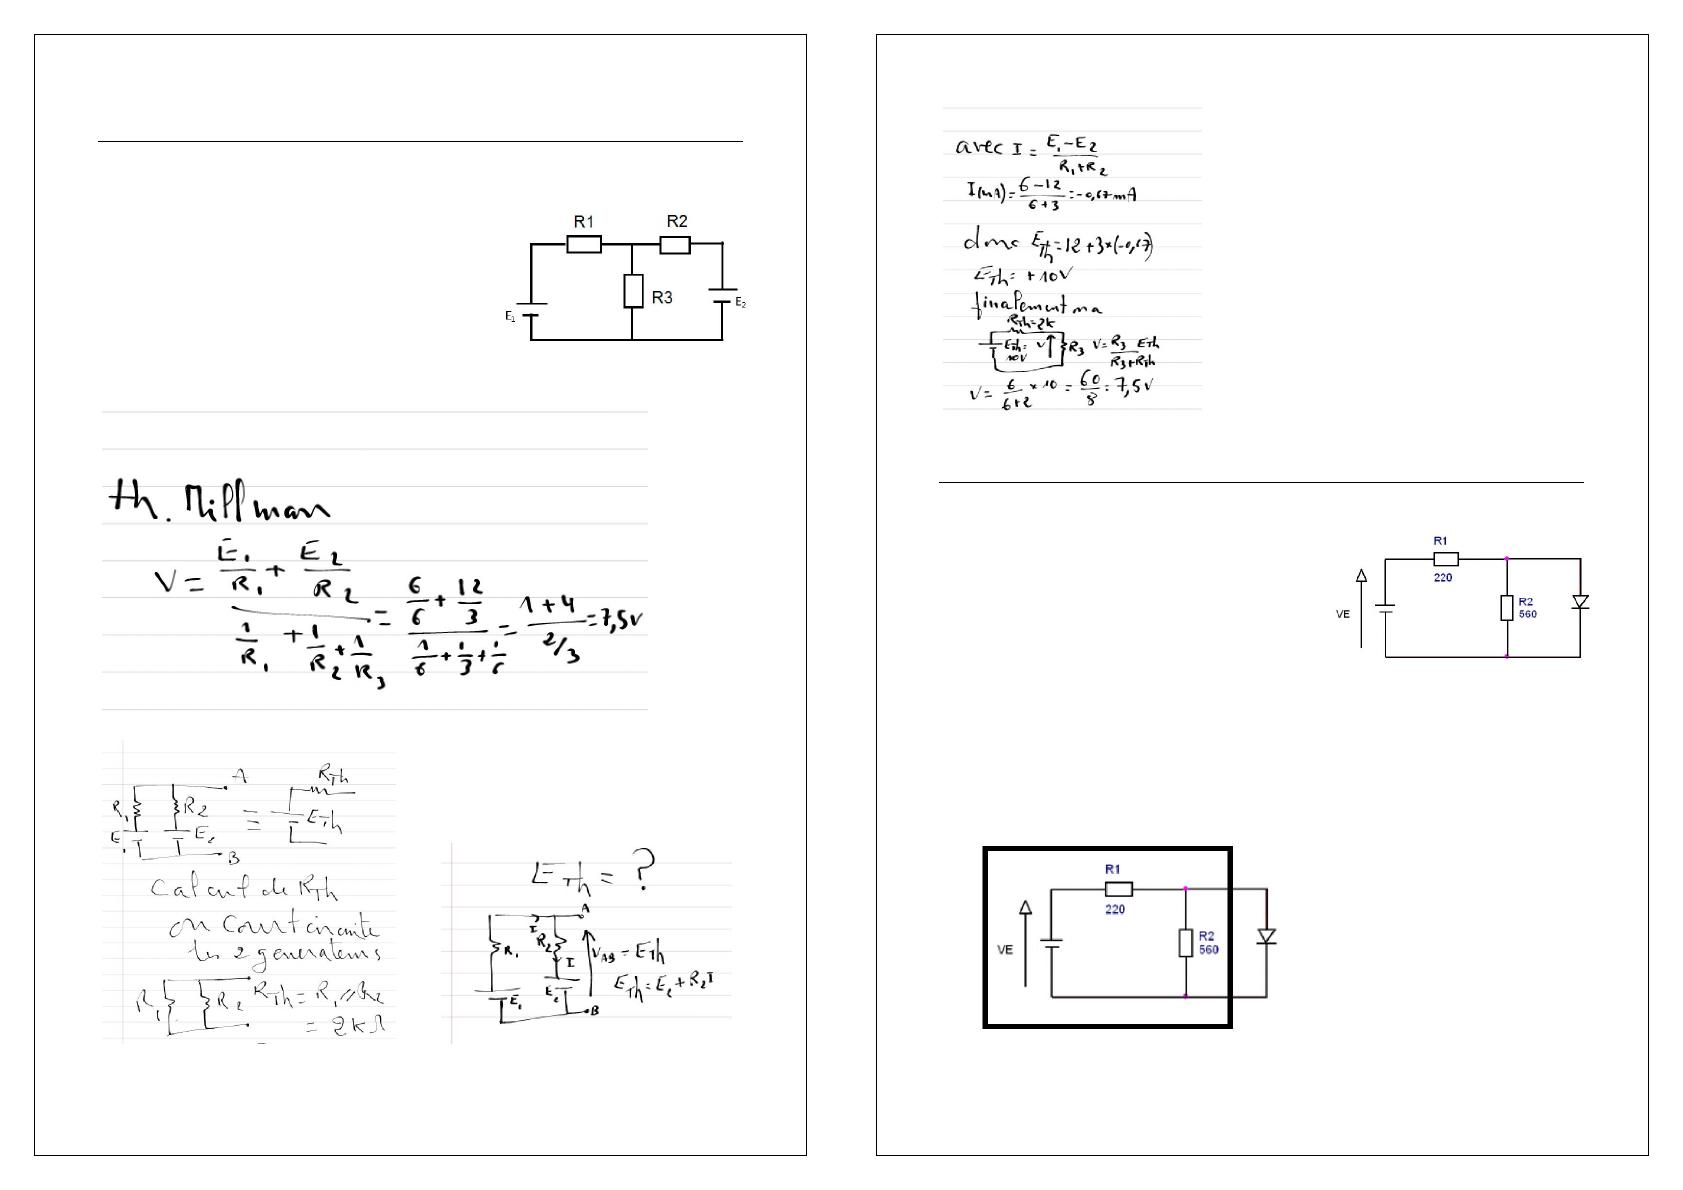 R1 R2
R3
E₁ E₂
th. Millman
V = (E₁/R₁ + E₂/R₂) / (1/R₁ + 1/R₂ + 1/R₃) = (6/6 + 12/3) / (1/6 + 1/3 + 1/6) = (1+4) / (2/3) = 7,5V
A RTh
R₁ R2 ≡ ETh
E₁ E₂
B
Calcul de RTh
on court circuite
les 2 generateurs
R₁ R2 RTh = R₁ // R2
= 2kΩ
ETh = ?
A
I
R₁ R2 VAB = ETh
I
E₁ E₂ ETh = E₂ + R2 I
B
avec I = (E₁-E2) / (R₁+R2)
I(mA) = (6-12) / (6+3) = -0,67mA
donc ETh = 12+3×(-0,67)
ETh = +10V
finalement on a
RTh=2k
ETh= 10V V R3 V = R3 ETh / (R3+RTh)
V = 6/(6+2) × 10 = 60/8 = 7,5V
R1
220
VE
R2
560
R1
220
VE
R2
560